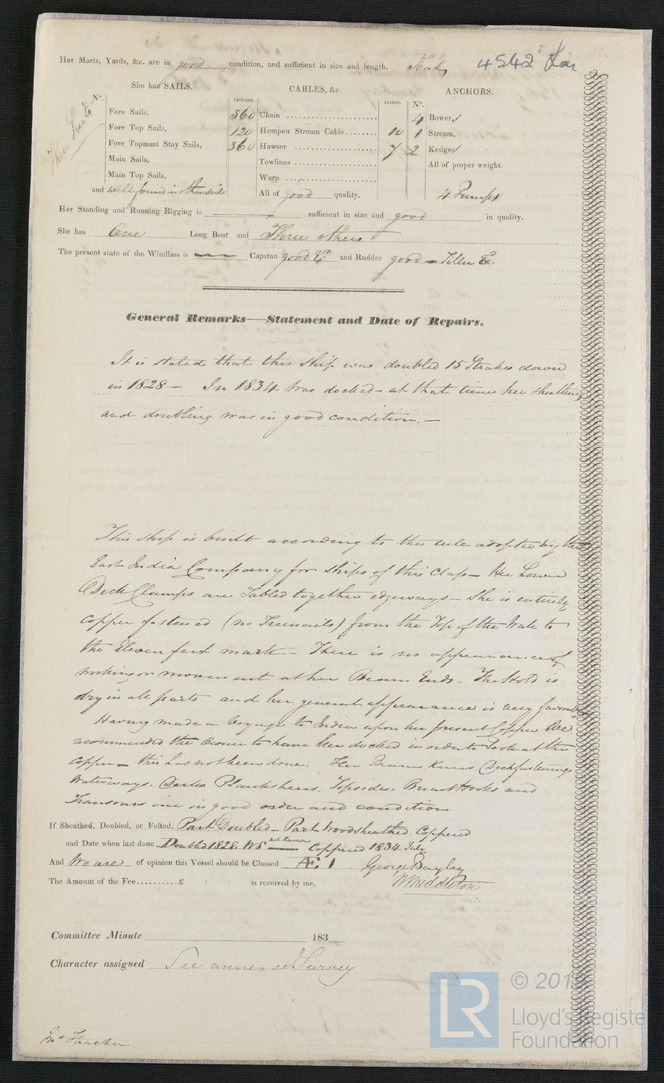 Her Masts, Yards, &c. are in good condition, and sufficient in size and length.
4542
She has SAILS. CABLES, &c. ANCHORS.
N°. Fathoms. Inches. N°.
Fore Sails, 360 Chain 4 Bowers
Fore Top Sails, 120 Hempen Stream Cable 10 1 Stream,
Fore Topmast Stay Sails, 360 Hawser 7 2 Kedges
Main Sails, Towlines All of proper weight.
Main Top Sails, Warp
and well found in other sails All of good quality. 4 Pumps
Her Standing and Running Rigging is sufficient in size and good in quality.
She has One Long Boat and Three others
The present state of the Windlass is — Capstan good & and Rudder good — Tiller &c.
General Remarks—Statement and Date of Repairs.
It is stated that this Ship was doubled 15 Strakes down
in 1828 — In 1834 was docked — at that time her sheathing
and doubling was in good condition. —
This Ship is built according to the rule adopted by the
East India Company for Ships of this Class — Her Lower
Deck Clamps are Tabled together edgeways — She is entirely
Copper fastened (no Treenails) from the Top of the Wale to
the Eleven feet mark. — There is no appearance of
working or movement at her Beam Ends. The Hold is
dry in all parts. and her general appearance is very favorable
Having made a Voyage to India upon her present Copper We
recommended the Owner to have her docked in order to look at the
Copper — this has not been done. Her Beams Knees, Deck fastenings
Waterways. Planksheers. Topsides. Breast Hooks and
Transoms are in good order and condition
If Sheathed, Doubled, or Felted, Part Doubled — Part Wood sheathed. Coppered
and Date when last done Doubled 1828. WS not known Coppered 1834 July
And We are of opinion this Vessel should be Classed Æ 1 George Bayley
The Amount of the Fee...........£ : : is received by me, Middleton
Committee Minute 183
Character assigned See annexed Survey
Thacker
LR
© 2019
Lloyd's Register
Foundation